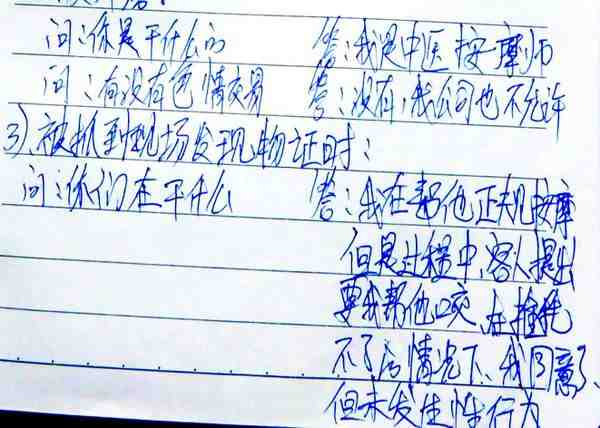 问:你是干什么的 答:我是中医按摩师
问:有没有色情交易 答:没有,我公司也不允许
3)、被抓到现场发现物证时:
问:你们在干什么 答:我在帮他正规按摩
但是过程中,客人提出
要我帮他咬,在推托
不了的情况下、我同意了、
但未发生性行为